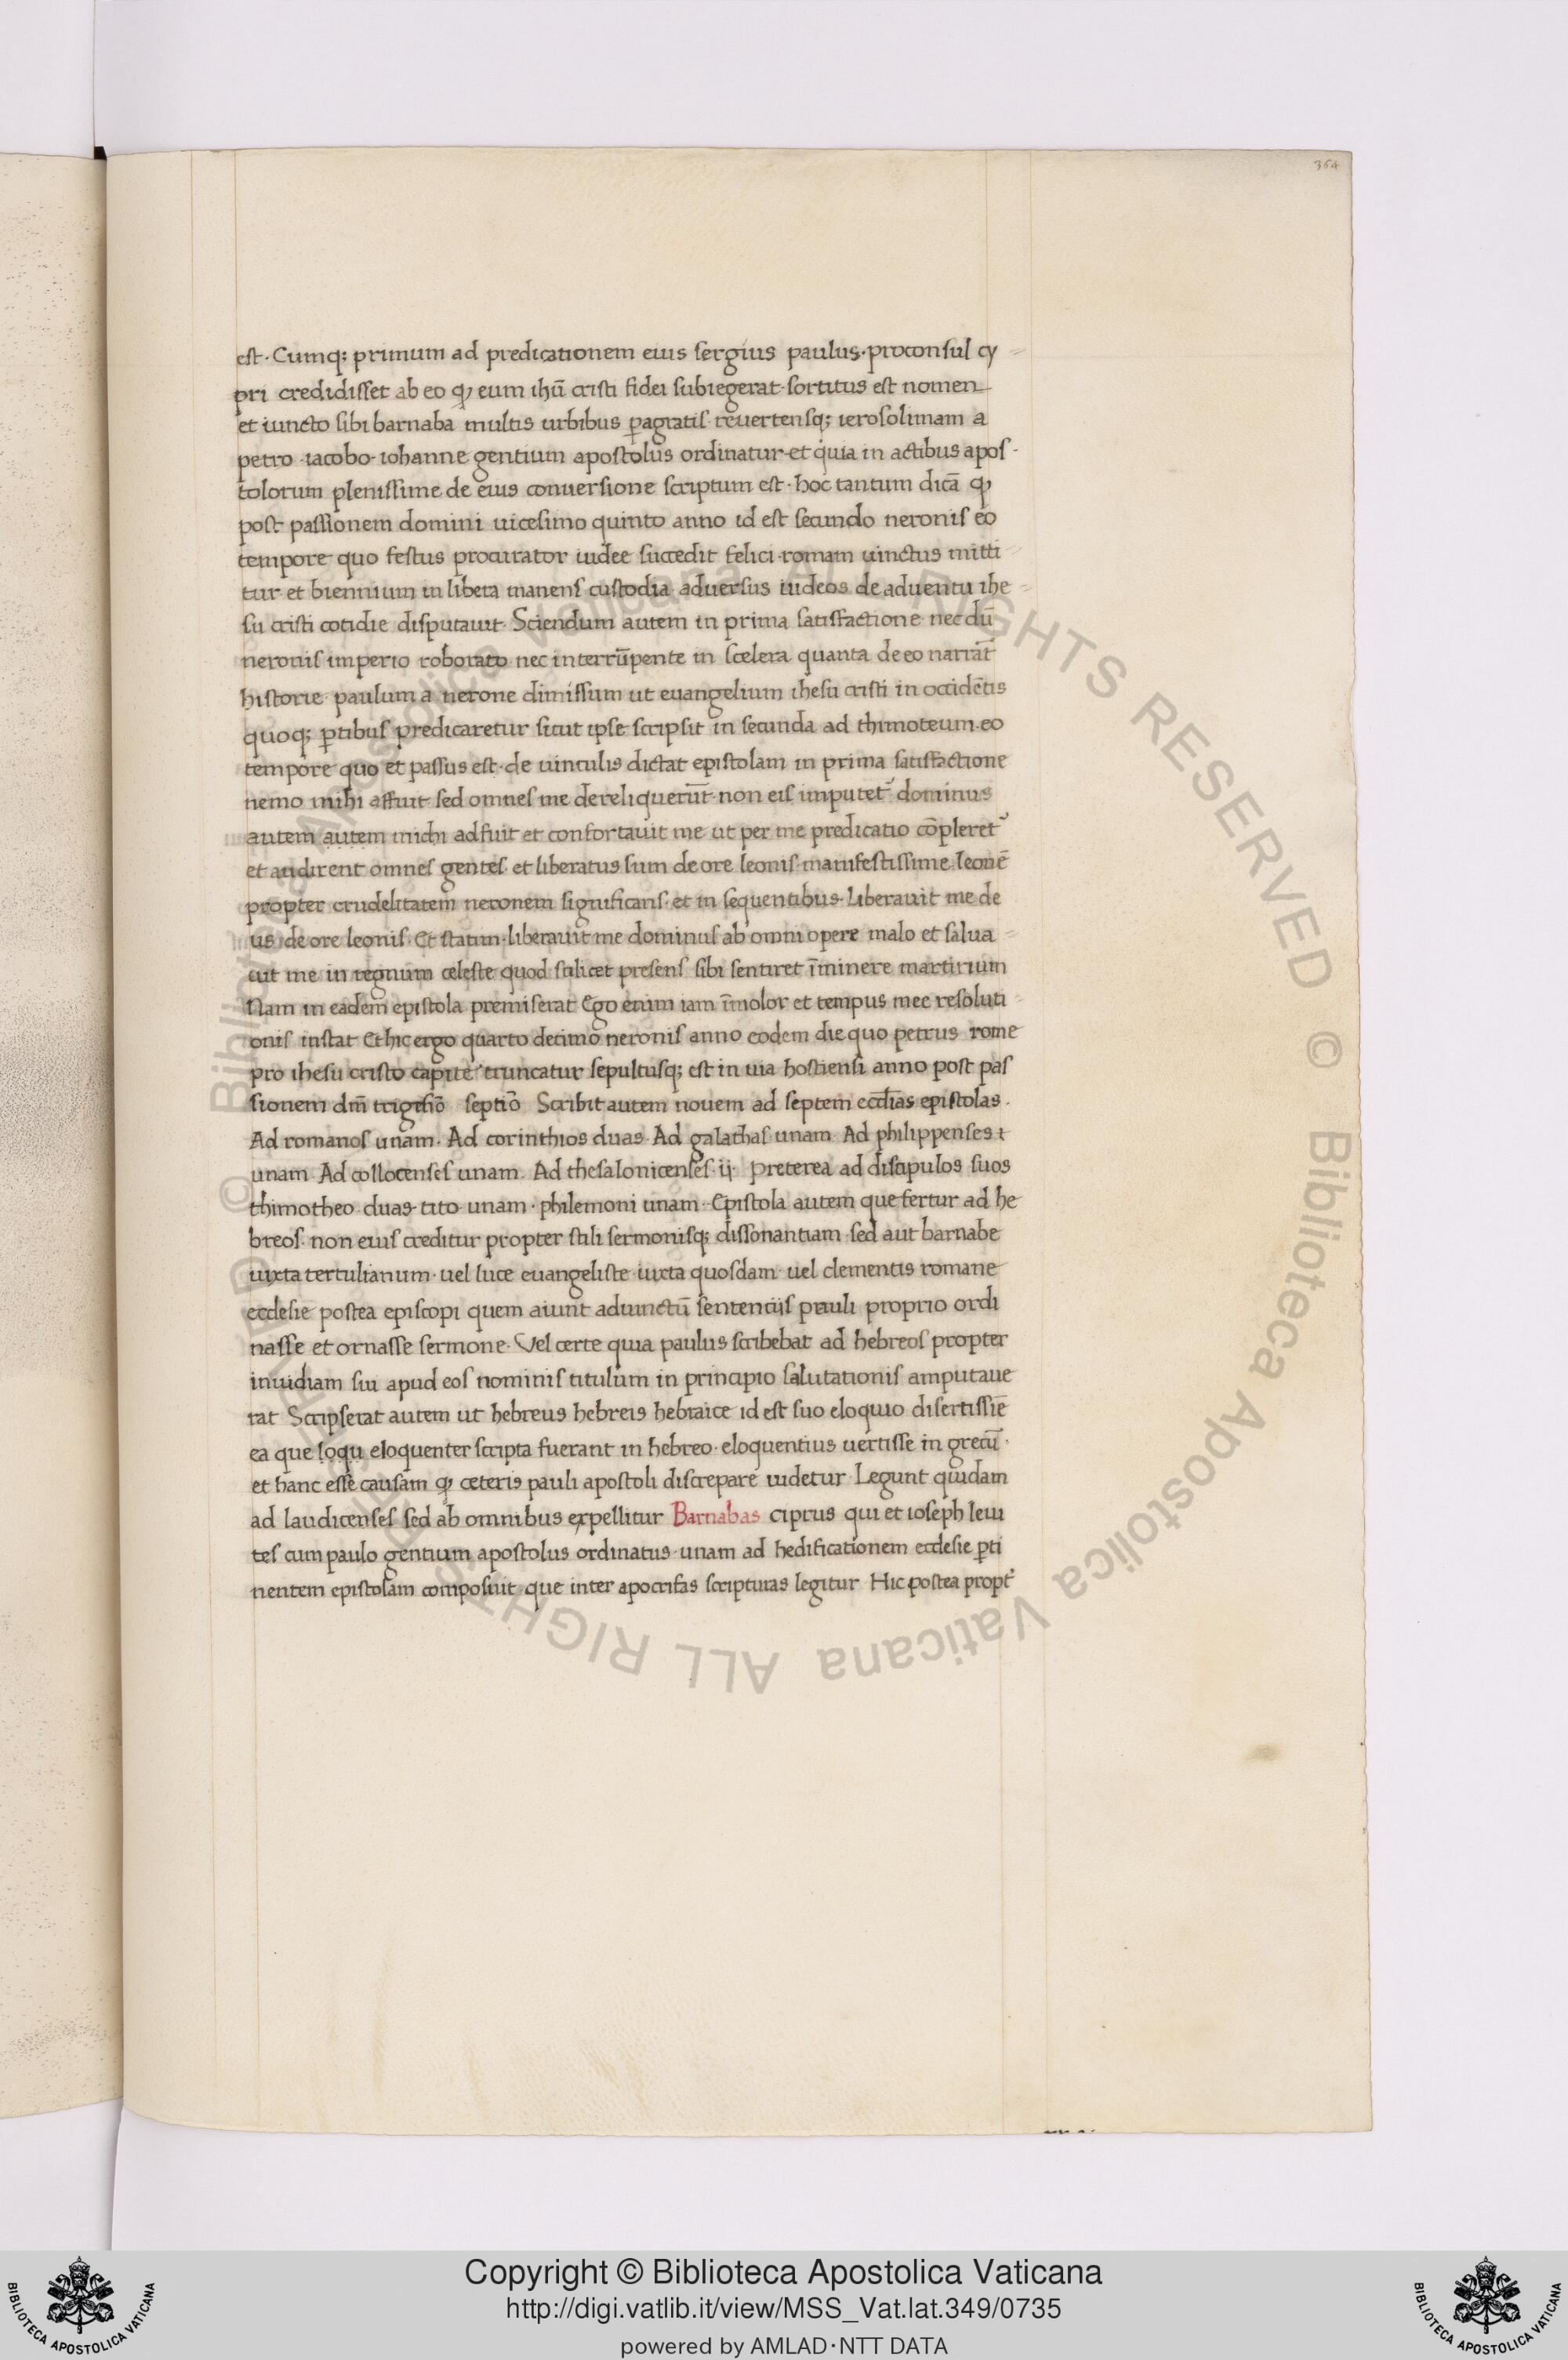 364
est · Cumq; primum ad predicationem eius sergius paulus · proconsul cy
pri credidisset ab eo qͥ eum ihū cristi fidei subiegerat · sortitus est nomen
et iuncto sibi barnaba multis urbibus ꝑagratis · reuertensq; ierosolimam a
petro · iacobo · iohanne gentium apostolus ordinatur · et quia in actibus apos
tolorum plenissime de eius conuersione scriptum est · hoc tantum dicā ꝙ
post passionem domini uicesimo quinto anno id est secundo neronis eo
tempore quo festus procurator iudee succedit felici · romam uinctus mitti
tur et biennium in libera manens custodia aduersus iudeos de aduentu ihe
su cristi cotidie disputauit · Sciendum autem in prima satisfactione nec dū
neronis imperio roborato nec interrūpente in scelera quanta de eo narrāt
historie paulum a nerone dimissum ut euangelium ihesu cristi in occidētis
quoq; ꝑtibus predicaretur sicut ipse scripsit in secunda ad thimoteum · eo
tempore quo et passus est · de uinculis dictat epistolam in prima satisfactione
nemo mihi affuit sed omnes me dereliquerūt · non eis imputet᷑ dominus
autem autem michi adfuit et confortauit me ut per me predicatio cōpleret᷑
et audirent omnes gentes · et liberatus sum de ore leonis · manifestissime leonē
propter crudelitatem neronem significans · et in sequentibus · Liberauit me de
us de ore leonis · Et statim · liberauit me dominus ab omni opere malo et salua
uit me in regnum celeste quod scilicet presens sibi sentiret īminere martirium
Nam in eadem epistola premiserat Ego enim iam īmolor et tempus mee resoluti
onis instat Et hic ergo quarto decimo neronis anno eodem die quo petrus rome
pro ihesu cristo capite truncatur sepultusq; est in uia hostiensi anno post pas
sionem dm̄ trigesīō septīō Scribit autem nouem ad septem eccl̄ias epistolas ·
Ad romanos unam · Ad corinthios duas · Ad galathas unam Ad philippenses
unam Ad collocenses unam · Ad thesalonicenses · ij · preterea ad discipulos suos
thimotheo duas · tito unam · philemoni unam · Epistola autem que fertur ad he
breos · non eius creditur propter stili sermonisq; dissonantiam · sed aut barnabe
iuxta tertulianum · uel luce euangeliste iuxta quosdam · uel clementis romane
ecclesie postea episcopi quem aiunt adiunctū sentenciis pauli proprio ordi
nasse et ornasse sermone · Vel certe quia paulus scribebat ad hebreos propter
inuidiam sui apud eos nominis titulum in principio salutationis amputaue
rat Scripserat autem ut hebreus hebreis hebraice id est suo eloquio disertissīe
ea que loqu eloquenter scripta fuerant in hebreo · eloquentius uertisse in grecū ·
et hanc esse causam ꝙ ceteris pauli apostoli discrepare uidetur Legunt quidam
ad laudicenses sed ab omnibus expellitur Barnabas ciprus qui et ioseph leui
tes cum paulo gentium apostolus ordinatus · unam ad hedificationem ecclesie ꝑti
nentem epistolam composuit que inter apocrifas scripturas legitur Hic postea propt᷑
© Biblioteca Apostolica Vaticana ALL RIGHTS RESERVED
Copyright © Biblioteca Apostolica Vaticana
http://digi.vatlib.it/view/MSS_Vat.lat.349/0735
powered by AMLAD·NTT DATA
BIBLIOTECA APOSTOLICA VATICANA
BIBLIOTECA APOSTOLICA VATICANA